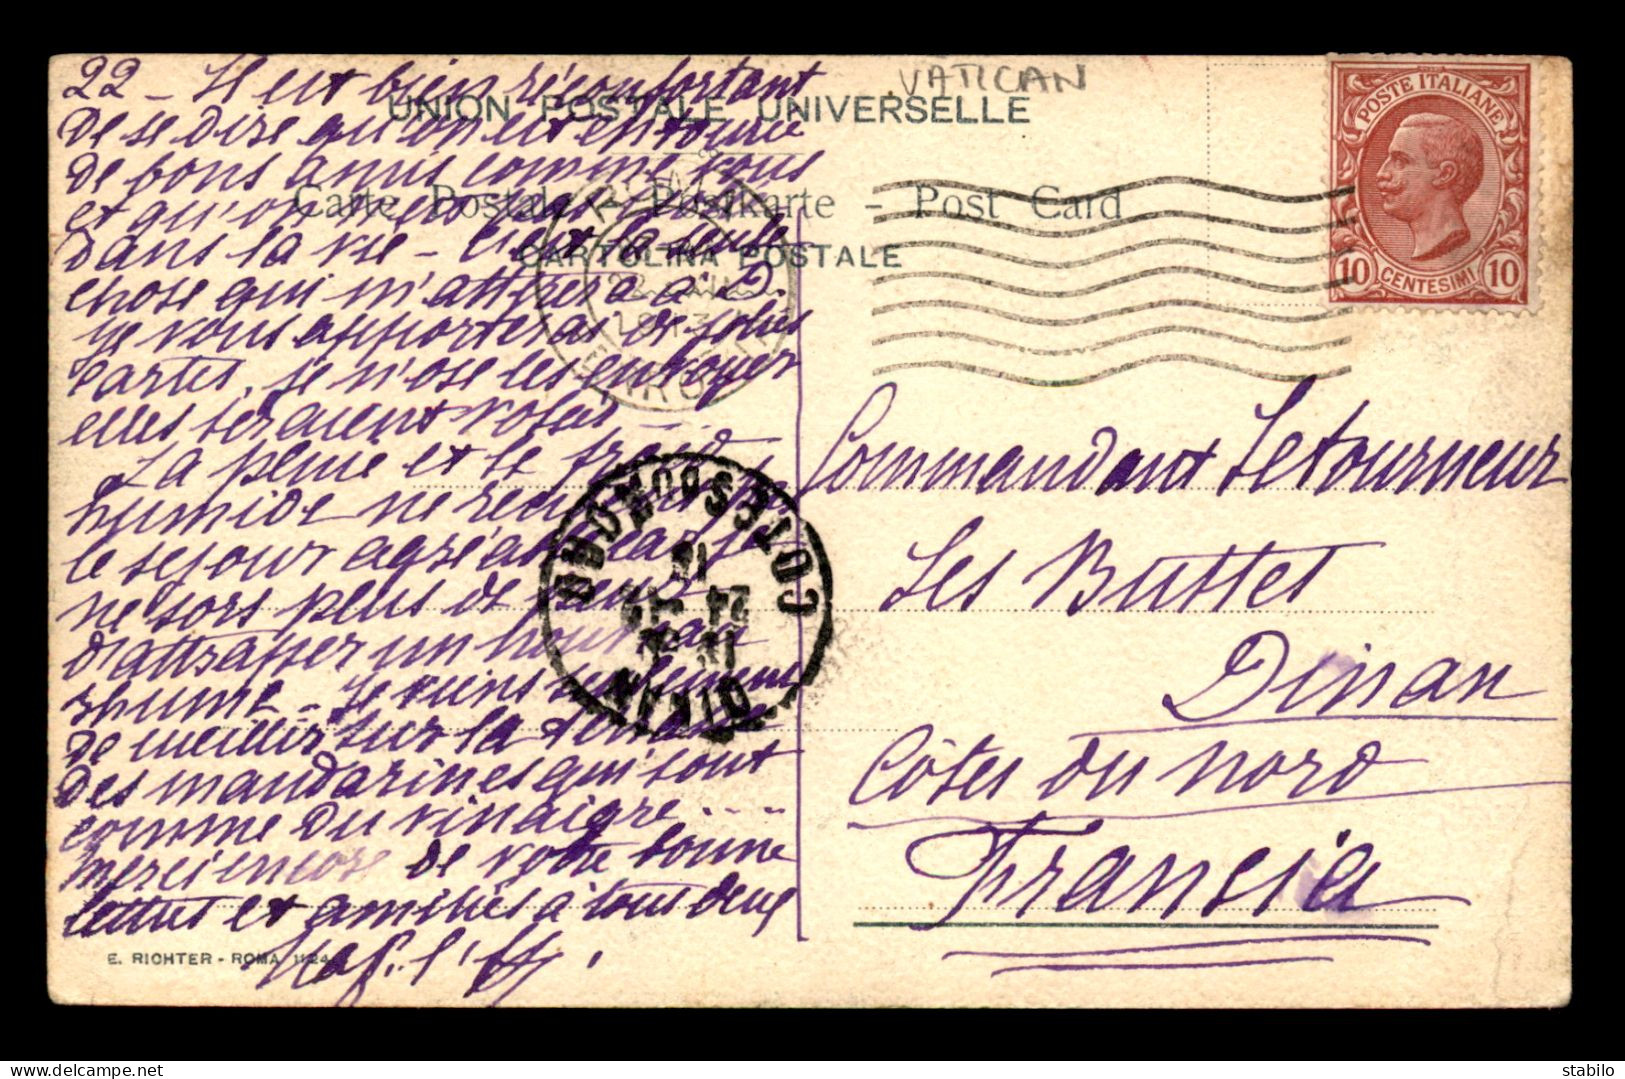 22 - Il est bien réconfortant
de se dire qu'on est entourée
de bons amis comme vous
et qu'on n'est pas
dans la vie - C'est la seule
chose qui m'attirera à D.
je vous apporterai de jolies
cartes, je n'ose les envoyer
elles seraient volées ...
La pluie et le froid
humide ne rendent pas
le séjour agréable car je
ne sors plus de peur
d'attrapper un nouveau
rhume - Je viens seulement
de cueillir sur la terrasse
des mandarines qui sont
comme du vinaigre ....
merci encore de votre bonne
lettre et amitiés à tous deux
VATICAN
UNION POSTALE UNIVERSELLE
Carte Postale - Postkarte - Post Card
CARTOLINA POSTALE
POSTE ITALIANE
10 CENTESIMI 10
COTES DU NORD
24 - 12
DINAN
Commandant Letourneur
Les Buttes
Dinan
Côtes du nord
Francia
E. RICHTER - ROMA 1124
stabilo